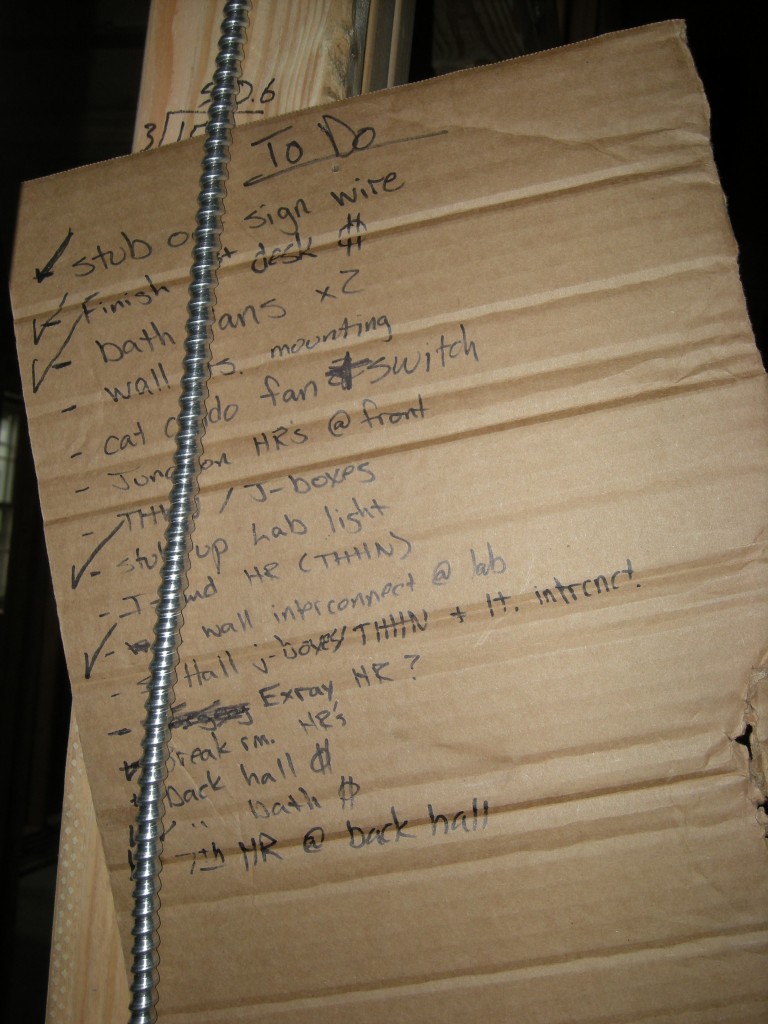 .6
3
To Do
stub sign wire
Finish desk $
bath ans x2
wall mounting
cat do fan switch
Junc on HR's @ front
/ J-boxes
stub up Lab light
HR (THHN)
wall interconnect @ lab
Hall j-boxes/THHN + lt. intrcnct.
Exray HR?
reak rm. HR's
back hall $
" bath $
7th HR @ back hall